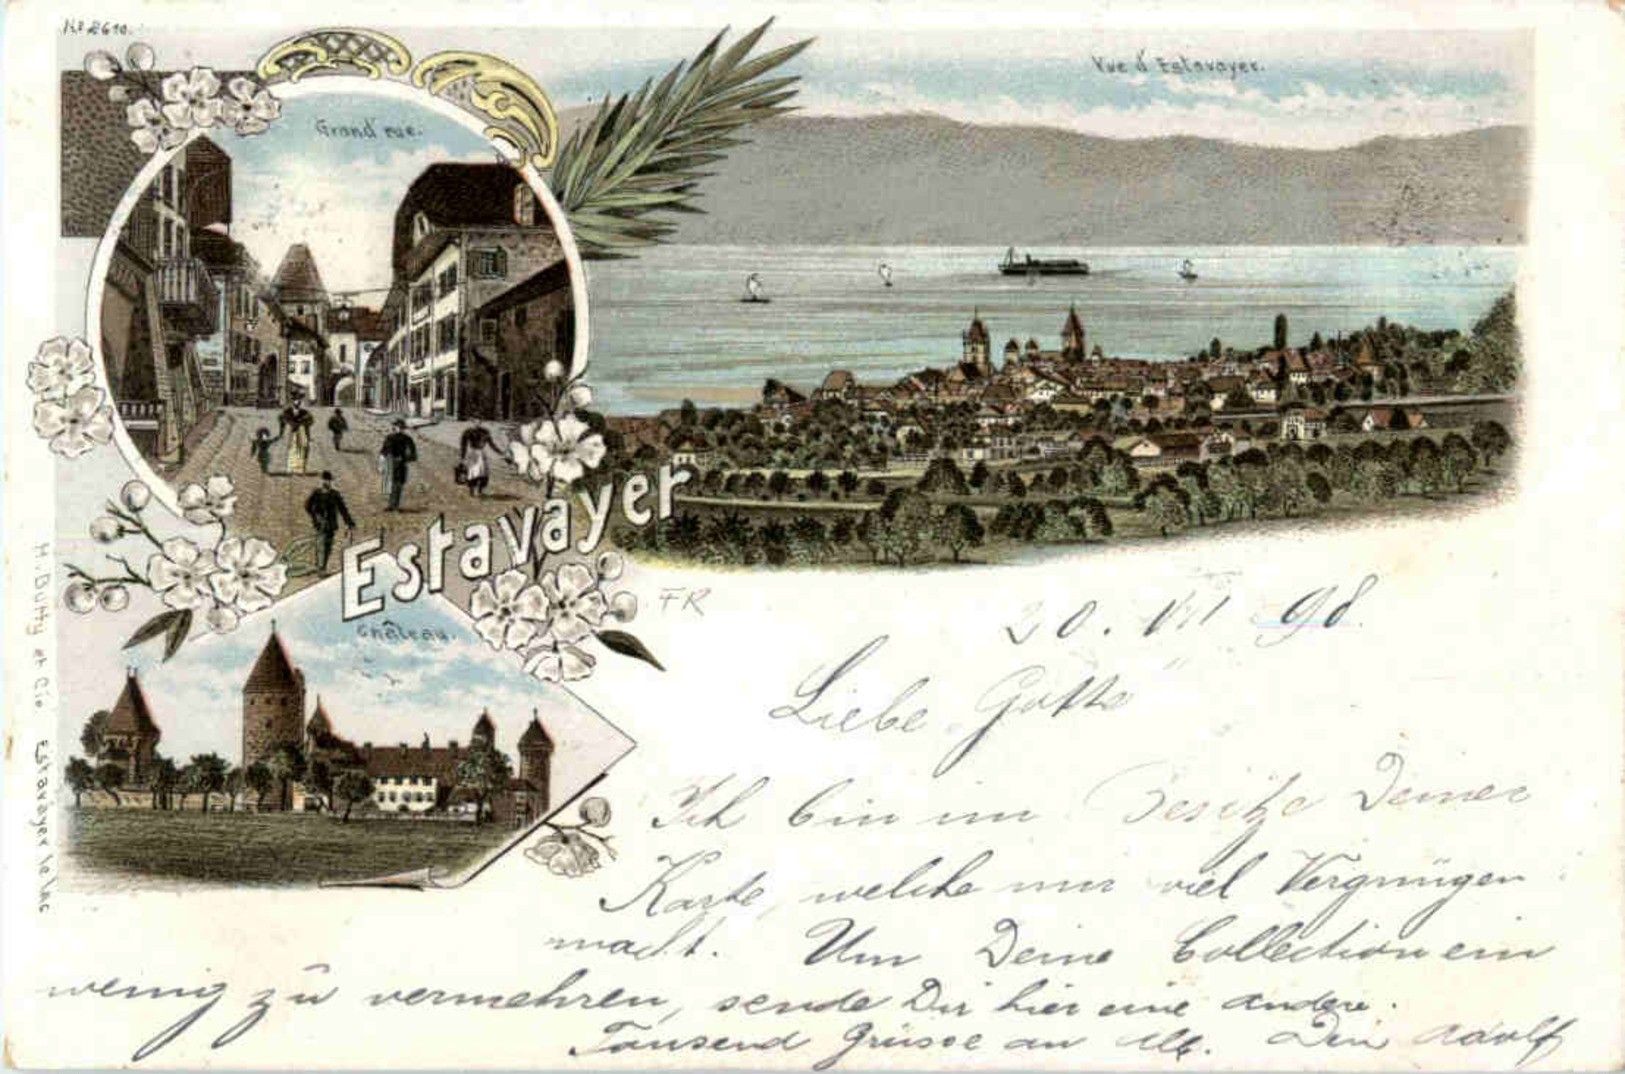 No 2610.
Grand'rue.
Vue d'Estavayer.
Estavayer
Château.
FR
H. Butty et Cie Estavayer le lac
20. VII 98.
Liebe Gotte
Ich bin im Besitze Deiner
Karte, welche mir viel Vergnügen
macht. Um Deine Collection ein
wenig zu vermehren, sende Dir hier eine andere.
Tausend Grüsse an alle. Dein Adolf